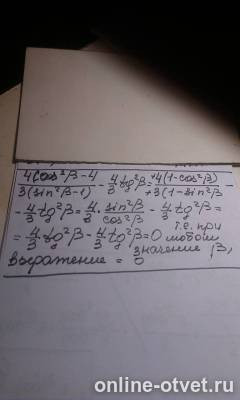 4cos²β-4 / 3(sin²β-1) - 4/3 tg²β = +4(1-cos²β) / +3(1-sin²β) -
- 4/3 tg²β = 4/3 · sin²β / cos²β - 4/3 tg²β =
= 4/3 tg²β - 4/3 tg²β = 0 т.е. при любом
значение β,
выражение = 0
online-otvet.ru